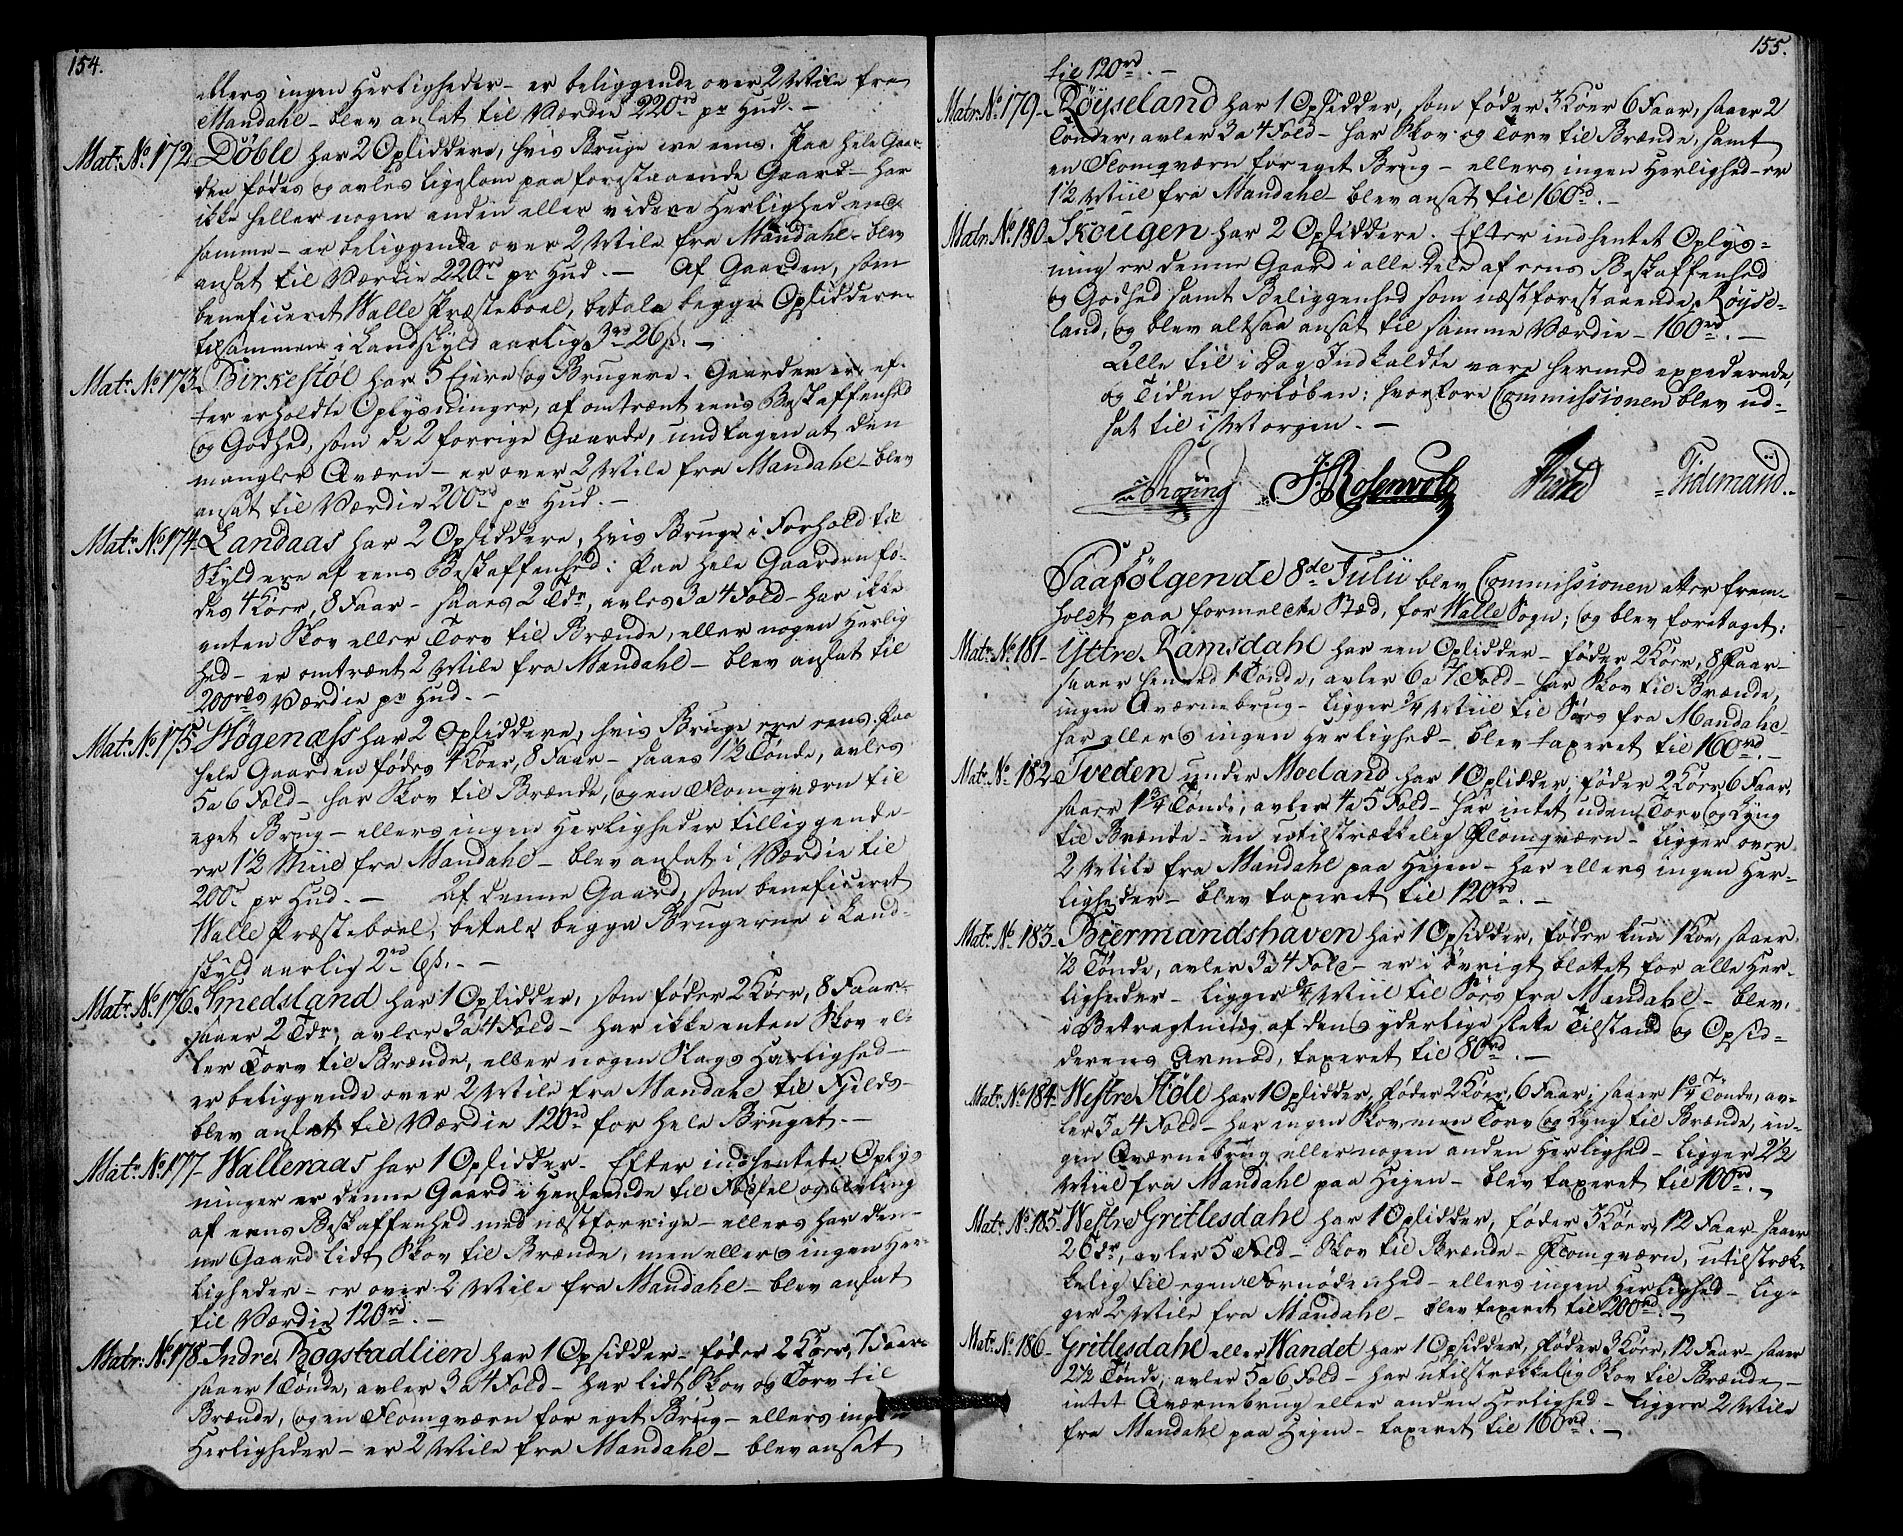 154.
ellers ingen Herligheder – er beliggende over 2 Mile fra
Mandahl – blev ansat til Værdie 220rd pr Hud. –
Matr. No 172. Döble har 2 Opsiddere, hvis Bruge ere eens. Paa hele Gaar-
den fødes og avles ligesom paa forestaaende Gaard – har
ikke heller nogen anden eller videre Herlighed end
samme – er beliggende over 2 Mile fra Mandahl – blev
ansat til Værdie 220rd pr Hud. – Af Gaarden, som
beneficeret Walle Præsteboel, betale begge Opsiddere
tilsammen i Landskyld aarlig 3rd 26ß. –
Matr. No 173. Birkestöl har 5 Eiere og Brugere. Gaarden er ef-
ter erholdte Oplysninger, af omtrænt eens Beskaffenhed
og Godhed, som de 2 forrige Gaarde, undtagen at den
mangler Qværn – er over 2 Mile fra Mandahl – blev
ansat til Værdie 200rd pr Hud. –
Matr. No 174. Landaas har 2 Opsiddere, hvis Bruge i Forhold til
Skyld ere af eens Beskaffenhed: Paa hele Gaarden fø-
des 4 Köer, 8 Faar – saaes 2 Tdr, avles 3 a 4 Fold – har ikke
enten Skov eller Torv til Brænde, eller nogen Herlig-
hed – er omtrænt 2 Mile fra Mandahl – blev ansat til
200rds Værdie pr Hud. –
Matr. No 175. Högenæss har 2 Opsiddere, hvis Bruge ere eens. Paa
hele Gaarden fødes 4 Köer, 8 Faar – saaes 1½ Tönde, avles
5 a 6 Fold – har Skov til Brænde, og en Flomqværn til
eget Brug – ellers ingen Herligheder tilliggende –
er 1½ Miil fra Mandahl – blev ansat i Værdie til
200rd pr Hud. – Af denne Gaard, som beneficeret
Walle Præsteboel, betale begge Brugerne i Land-
skyld aarlig 2rd 6ß. –
Matr. No 176. Smedsland har 1 Opsidder, som føder 2 Köer, 8 Faar –
saaer 2 Tdr, avler 3 a 4 Fold – har ikke enten Skov el-
ler Torv til Brænde, eller nogen Slags Herlighed –
er beliggende over 2 Mile fra Mandahl til Fjelds –
blev ansat til Værdie 120rd for hele Bruget. –
Matr. No 177. Walleraas har 1 Opsidder. Efter indhentede Oplys-
ninger er denne Gaard i Henseende til Fødsel og Avling
af eens Beskaffenhed med næstforrige – ellers har den-
ne Gaard lidt Skov til Brænde, men ellers ingen Her-
ligheder – er over 2 Mile fra Mandahl – blev ansat
til Værdie 120rd. –
Matr. No 178. Indre Rogstadlien har 1 Opsidder – føder 2 Köer, 7 Faar –
saaer 1 Tönde, avler 3 a 4 Fold – har lidt Skov og Torv til
Brænde, og en Flomqværn for eget Brug – ellers ingen
Herligheder – er 2 Mile fra Mandahl – blev ansat
155.
til 120rd. –
Matr. No 179. Röyseland har 1 Opsidder, som føder 3 Köer 6 Faar, saaer 2
Tönder, avler 3 a 4 Fold – har Skov og Torv til Brænde, samt
en Flomqværn for eget Brug – ellers ingen Herlighed – er
1½ Miil fra Mandahl – blev ansat til 160rd. –
Matr. No 180. Skougen har 2 Opsiddere. Efter indhentet Oplys-
ning er denne Gaard i alle Dele af eens Beskaffenhed
og Godhed samt Beliggenhed som næstforestaaende, Röyse-
land, og blev altsaa ansat til samme Værdie – 160rd. –
Alle til i Dag Indkaldte vare hermed expederede,
og Tiden forløben: hvorfore Commissionen blev ud-
sat til i Morgen. –
J. Rosenvold Tidemand.
Paafölgende 8de Julii blev Commissionen atter frem-
holdt paa formeldte Stæd, for Walle Sogn; og blev foretaget:
Matr. No 181. Yttre Ramsdahl har een Opsidder – føder 2 Köer, 8 Faar –
saaer henved 1 Tönde, avler 6 a 7 Fold – har Skov til Brænde,
ingen Qværnebrug – ligger ¾ Miil til Söes fra Mandahl –
har ellers ingen Herlighed – blev taxeret til 160rd. –
Matr. No 182. Tveden under Moeland har 1 Opsidder, føder 2 Köer 6 Faar,
saaer 1¾ Tönde, avler 4 a 5 Fold – har intet uden Torv og Lyng
til Brænde – en utilstrækkelig Flomqværn – ligger over
2 Mile fra Mandahl paa Heyen – har ellers ingen Her-
ligheder – blev taxeret til 120rd. –
Matr. No 183. Biermandshaven har 1 Opsidder, føder kun 1 Koe, saaer
½ Tönde, avler 3 a 4 Fold – er i övrigt blottet for alle Her-
ligheder – ligger Miil til Söes fra Mandahl – blev,
i Betragtning af dens yderlige slette Tilstand og Opsid-
derens Armod, taxeret til 80rd. –
Matr. No 184. Westre Stöle har 1 Opsidder, føder 2 Köer, 6 Faar, saaer 1¾ Tönde, av-
ler 3 a 4 Fold – har ingen Skov, men Torv og Lyng til Brænde, in-
gen Qværnebrug eller nogen anden Herlighed – ligger 2½
Miil fra Mandahl paa Heyen – blev taxeret til 100rd. –
Matr. No 185. Westre Gritlesdahl har 1 Opsidder, føder 3 Köer, 12 Faar – saaer
2 Tdr, avler 5 Fold – Skov til Brænde – Flomqværn, utilstræk-
kelig til egen Fornødenhed – ellers ingen Herlighed – lig-
ger 2 Mile fra Mandahl – blev taxeret til 200rd. –
Matr. No 186. Gritlesdahl eller Wandet har 1 Opsidder, føder 3 Köer, 12 Faar – saaer
2½ Tönde, avler 5 a 6 Fold – har utilstrækkelig Skov til Brænde –
intet Qværnebrug eller anden Herlighed – ligger 2 Mile
fra Mandahl paa Heyen – taxeret til 160rd. –